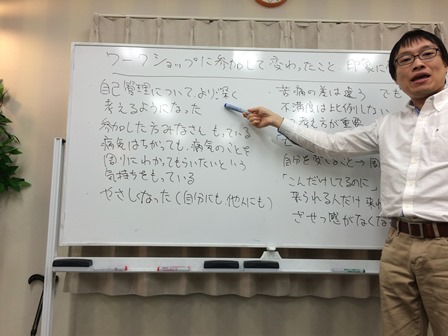 ワークショップに参加して変わったこと 印象に
自己管理について、より深く
考えるようになった
参加した方みなさんもっている
病気はちがっても、病気のことを
周りにわかってもらいたいという
気持ちをもっている
やさしくなった(自分にも他人にも)
苦痛の差は違う でも
不満度は比例しない
考え方が重要
自分を変
「こんだけしてるのに」
来られる人だけ来れ
ざせつ感がなくな